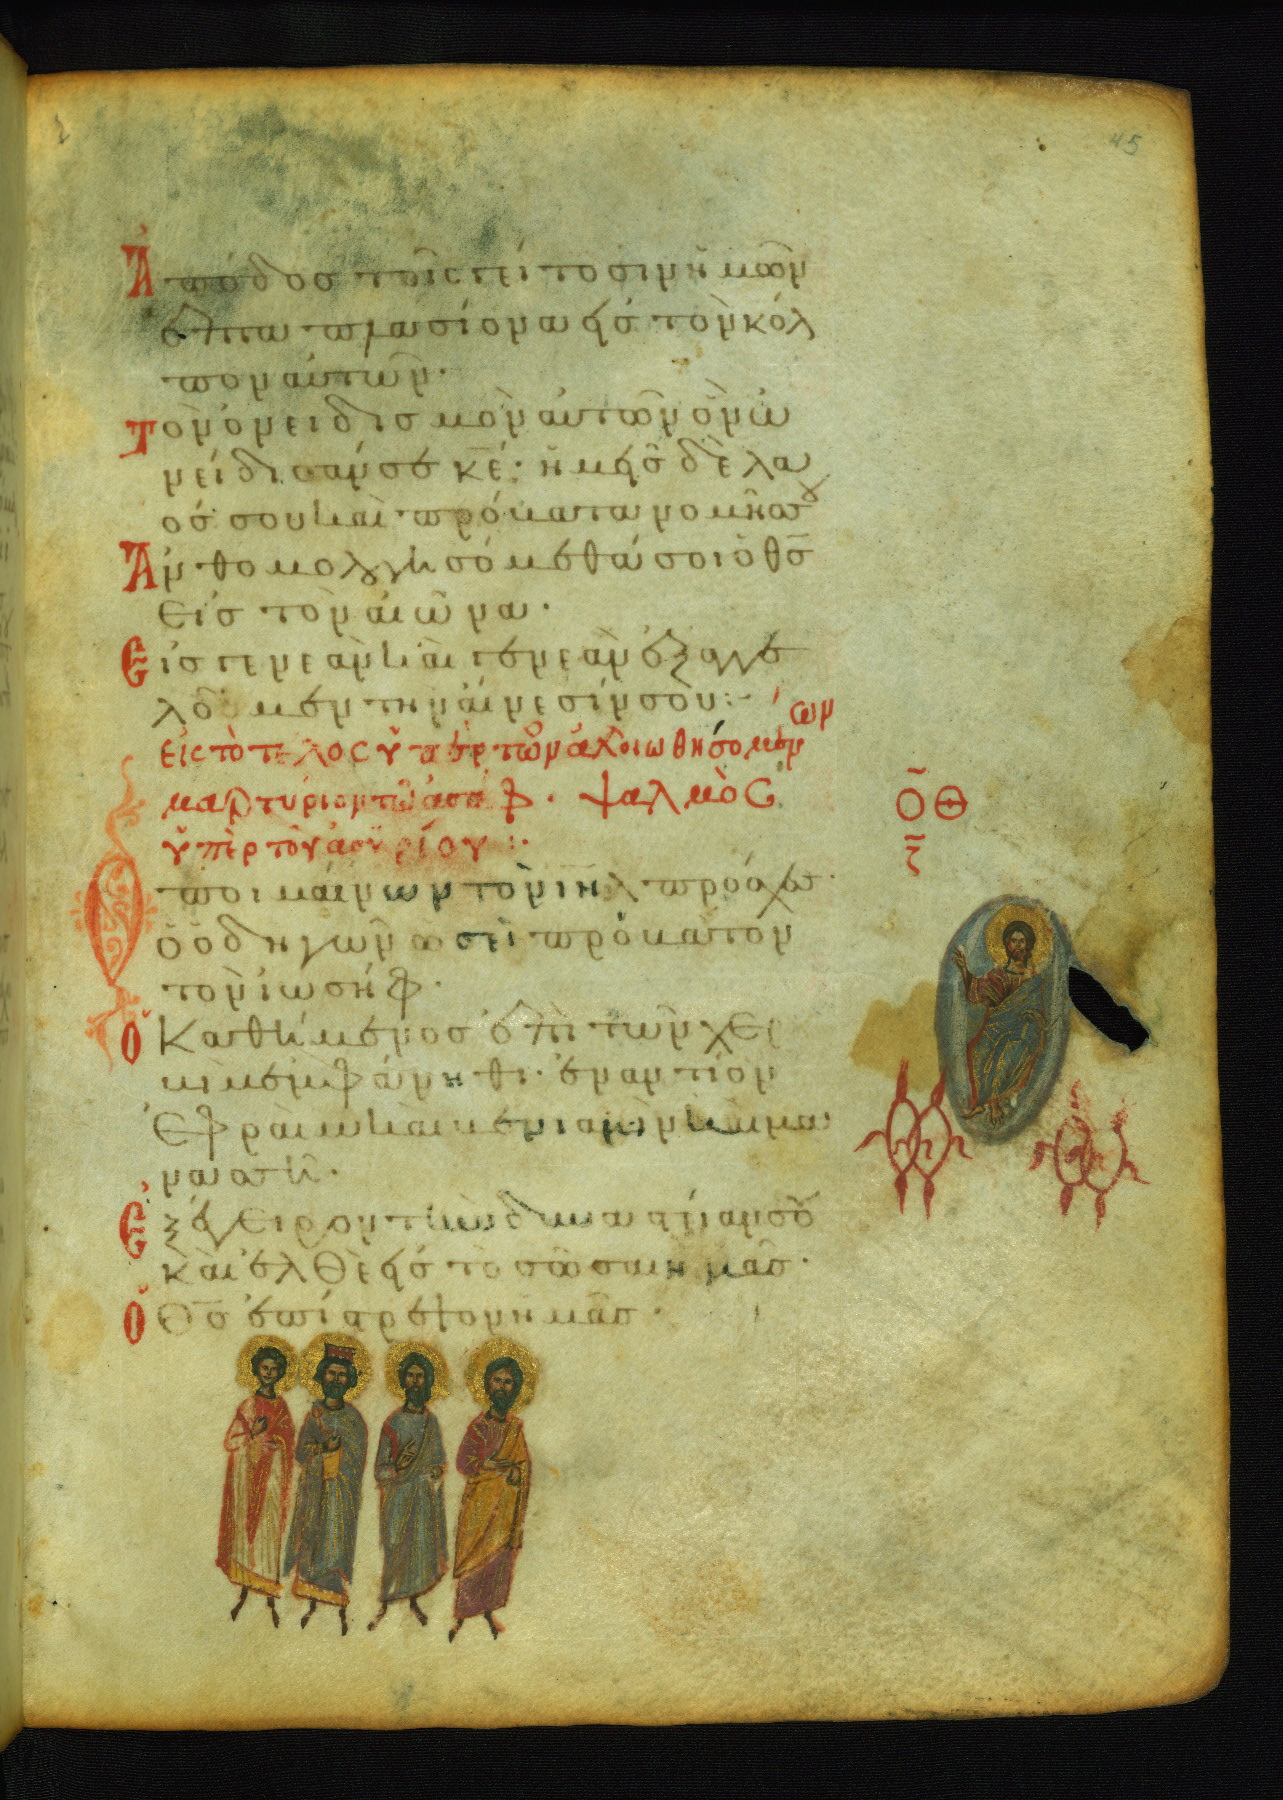 45
Ἀπόδος τοῖς γείτοσιν ἡμῶν
ἑπταπλασίονα εἰς τὸν κόλ
πον αὐτῶν·
τὸν ὀνειδισμὸν αὐτῶν ὃν ὠ
νείδισάν σε κ̅ε̅· ἡμεῖς δὲ λα
ός σου καὶ πρόβατα νομῆς σου
Ἀνθομολογησόμεθά σοι ὁ θ̅ς̅
εἰς τὸν αἰῶνα·
Εἰς γενεὰν καὶ γενεὰν ἐξαγγε
λοῦμεν τὴν αἴνεσίν σου:
εἰς τὸ τέλος ὑπὲρ τῶν ἀλλοιωθησομένων
μαρτύριον τῷ ἀσάφ· ψαλμὸς
ὑπὲρ τοῦ ἀσσυρίου:
Ὁ ποιμαίνων τὸν ι̅η̅λ̅ πρόσχες·
ὁ ὁδηγῶν ὡσεὶ πρόβατον
τὸν ἰωσήφ·
ὁ Θ
ο̅θ̅
Ὁ καθήμενος ἐπὶ τῶν χε
ουβὶμ ἐμφάνηθι· ἐναντίον
Ἐφραὶμ καὶ βενιαμὶν καὶ μα
νασσῆ·
Ἐξέγειρον τὴν δυναστείαν σου
καὶ ἐλθὲ εἰς τὸ σῶσαι ἡμᾶς·
Ὁ θ̅ς̅ ἐπίστρεψον ἡμᾶς·